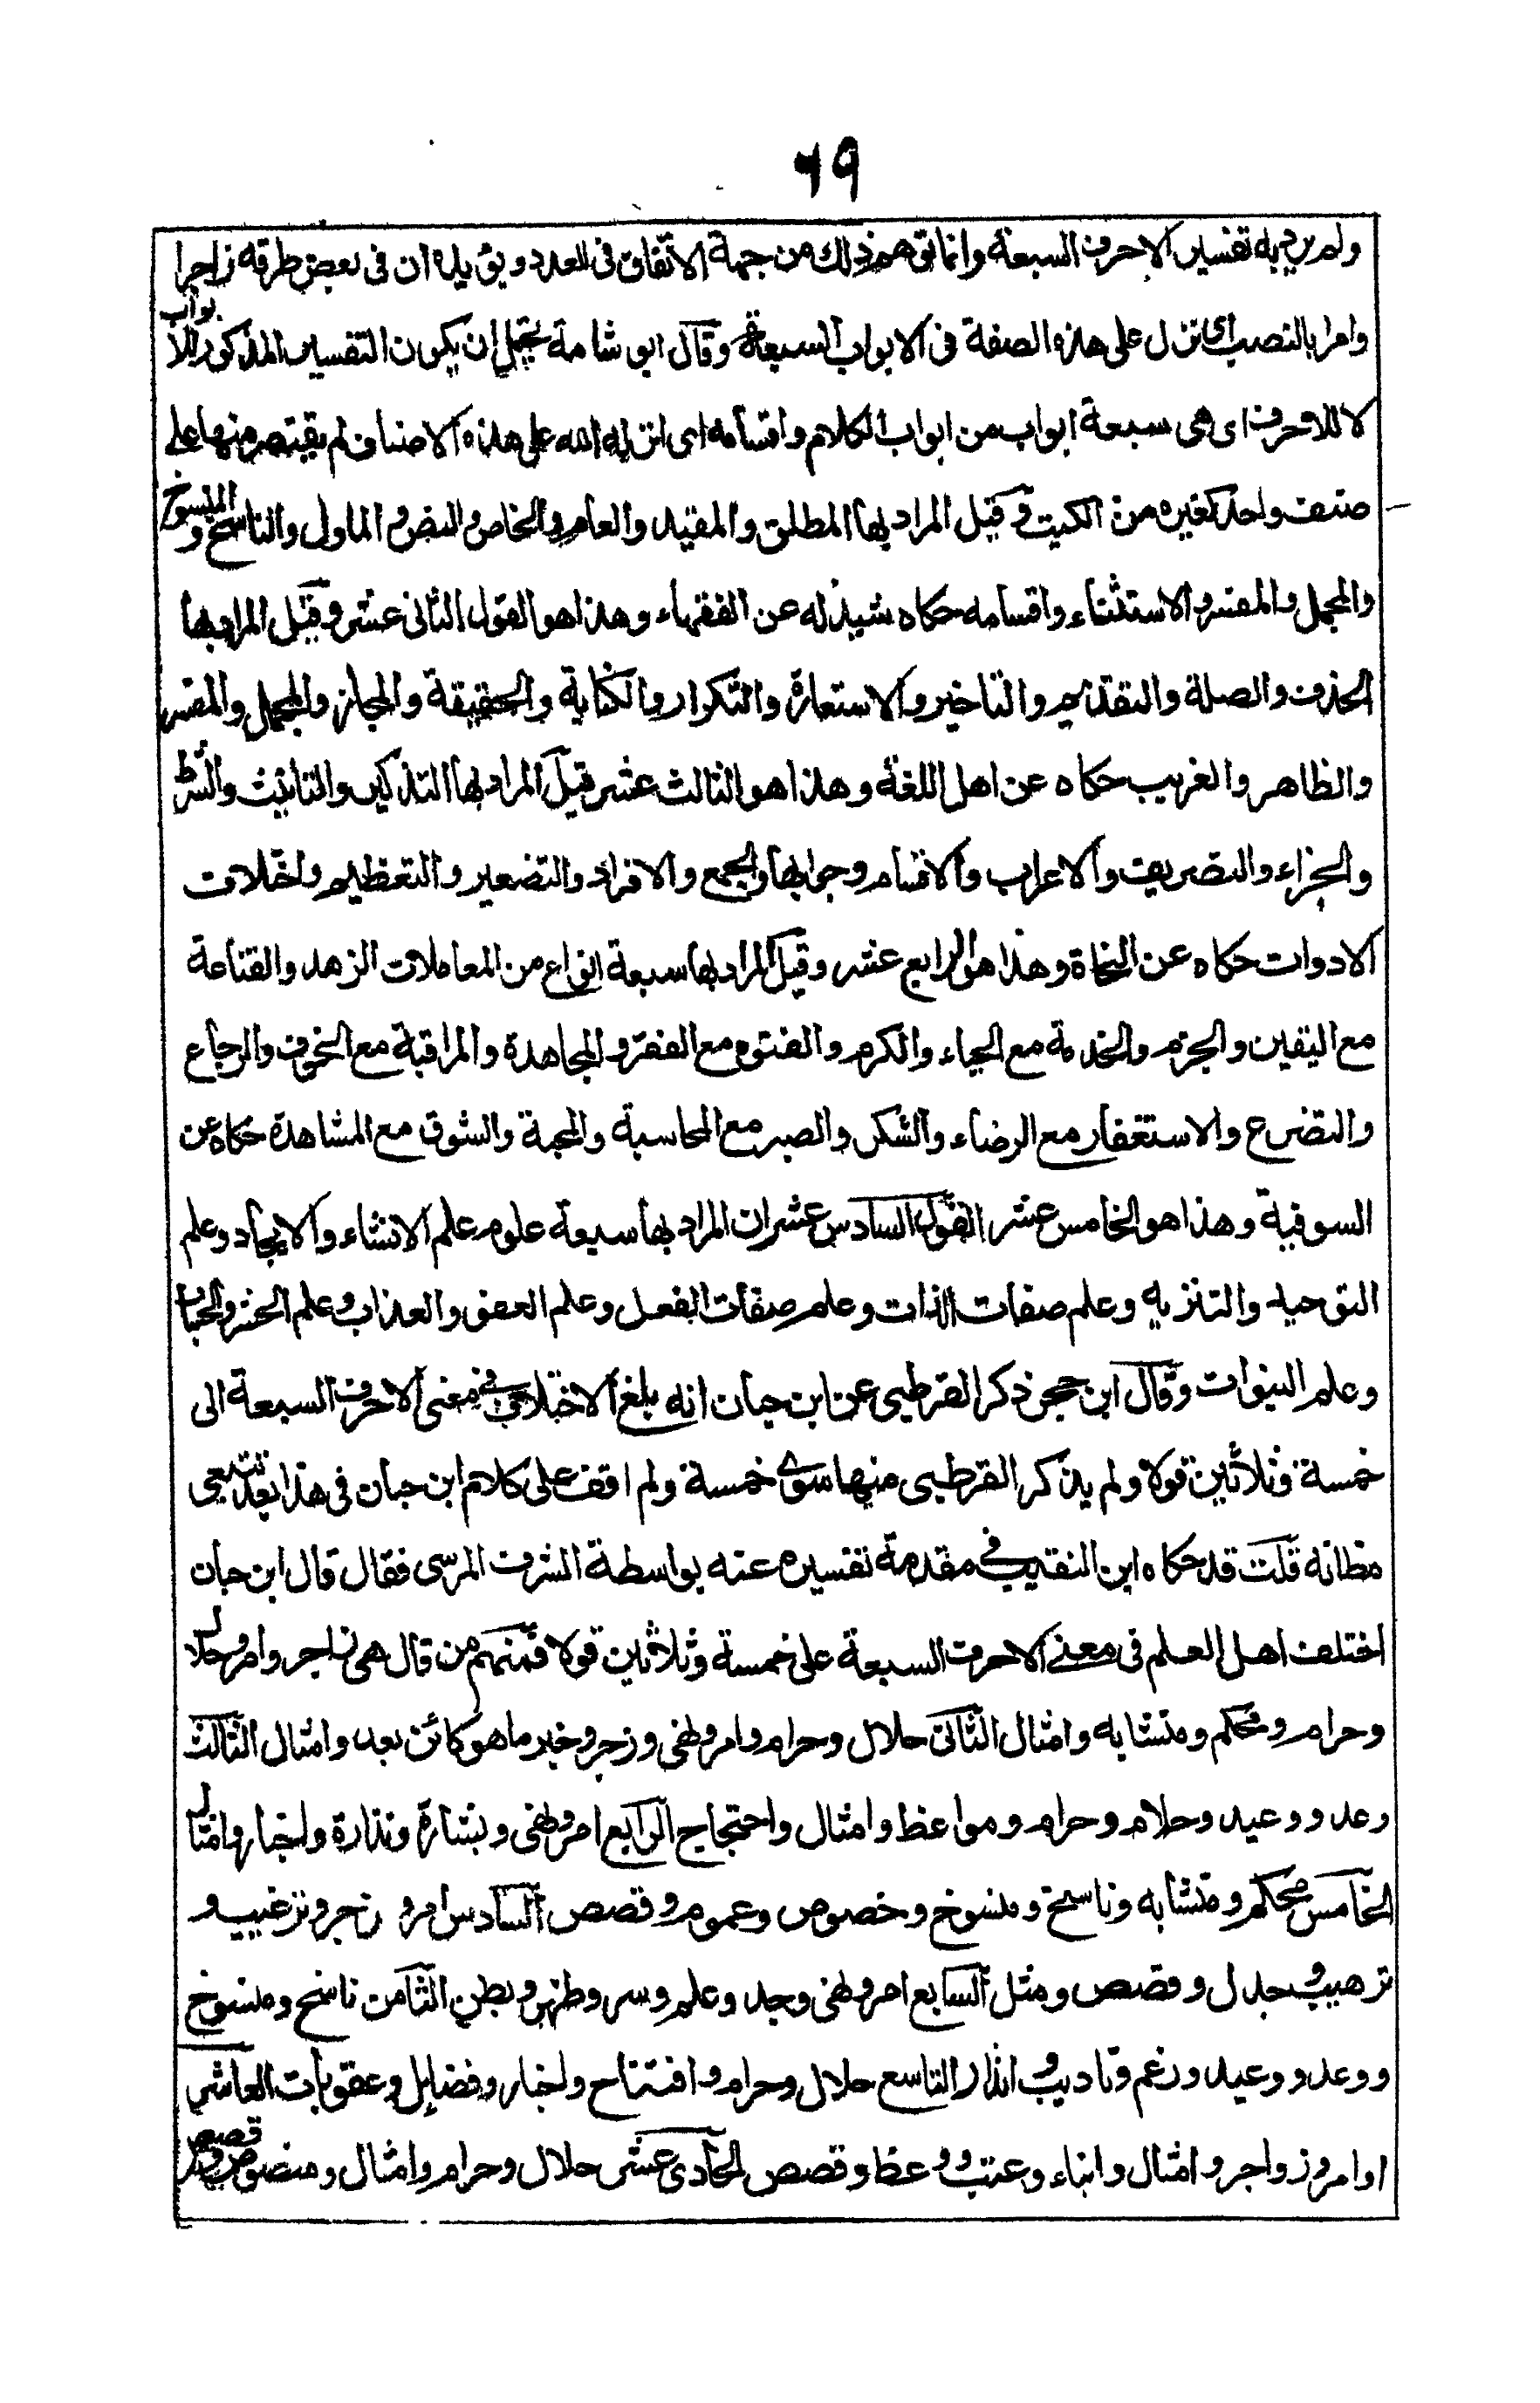 ٦٩
ولم يرد به تفسير الاحرف السبعة وانما توهم ذلك من جهة الاتفاق في العدد ويؤيده ان في بعض طرقه زاجرا
وامرا بالنصب اى نزل على هذه الصفة فى الابواب السبعة وقال ابو شامة يحتمل ان يكون التفسير المذكور للابواب
لا للاحرف اى هى سبعة ابواب من ابواب الكلام واقسامه اى انزله الله على هذه الاصناف لم يقتصر منها على
صنف واحد كغيره من الكتب وقيل المراد بها المطلق والمقيد والعام والخاص والنص والماول والناسخ والمنسوخ
والمجمل والمفسر والاستثناء واقسامه حكاه شيذله عن الفقهاء وهذا هو القول الثانى عشر وقيل المراد بها
الحذف والصلة والتقديم والتاخير والاستعارة والتكرار والكناية والحقيقة والمجاز والمجمل والمفسر
والظاهر والغريب حكاه عن اهل اللغة وهذا هو الثالث عشر قيل المراد بها التذكير والتانيث والشرط
والجزاء والتصريف والاعراب والاقسام وجوابها والجمع والافراد والتصغير والتعظيم واختلاف
الادوات حكاه عن النحاة وهذا هو الرابع عشر وقيل المراد بها سبعة انواع من المعاملات الزهد والقناعة
مع اليقين والجزم والخدمة مع الحياء والكرم والفتوه مع الفقر والمجاهدة والمراقبة مع الخوف والرجاء
والتضرع والاستغفار مع الرضاء والشكر والصبر مع المحاسبة والمحبة والشوق مع المشاهدة حكاه عن
السوفية وهذا هو الخامس عشر القول السادس عشر ان المراد بها سبعة علوم علم الانشاء والايجاد وعلم
التوحيد والتنزيه وعلم صفات الذات وعلم صفات الفعل وعلم العفو والعذاب وعلم الحشر والحساب
وعلم النبوات وقال ابن حجر ذكر القرطبى عن ابن حبان انه بلغ الاختلاف في معنى الاحرف السبعة الى
خمسة وثلاثين قولا ولم يذكر القرطبى منها سوى خمسة ولم اقف على كلام ابن حبان فى هذا بعد تتبعى
مظانه قلت قد حكاه ابن النقيب في مقدمة تفسيره عنه بواسطة الشرف المرسى فقال قال ابن حبان
اختلف اهل العلم فى معنى الاحرف السبعة على خمسة وثلاثين قولا فمنهم من قال هى زاجر وامر وحلال
وحرام ومحكم ومتشابه وامثال الثانى حلال وحرام وامر ونهى وزجر وخبر ما هو كائن بعد وامثال الثالث
وعد ووعيد وحلام وحرام ومواعظ وامثال واحتجاج الرابع امر ونهى وبشارة ونذارة واخبار وامثال
الخامس محكم ومتشابه وناسخ ومنسوخ وخصوص وعموم وقصص السادس امر و زجر وترغيب و
ترهيب وجدل وقصص ومثل السابع امر ونهى وجد وعلم وسر وظهر وبطن الثامن ناسخ ومنسوخ
ووعد ووعيد ورغم وتاديب وانذار التاسع حلال وحرام وافتتاح واخبار وفضايل وعقوبات العاشر
اوامر وزواجر وامثال وانباء وعتب ووعظ وقصص الحادى عشر حلال وحرام وامثال ومنصوص وقصص